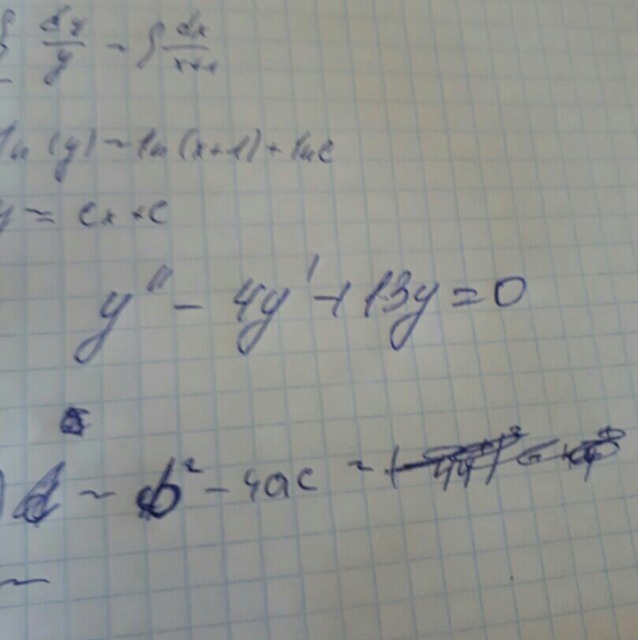 ∫ dy/y = ∫ dx/x+1
ln(y) = ln(x+1) + ln c
y = cx + c
y'' - 4y' + 13y = 0
d = b² - 4ac =